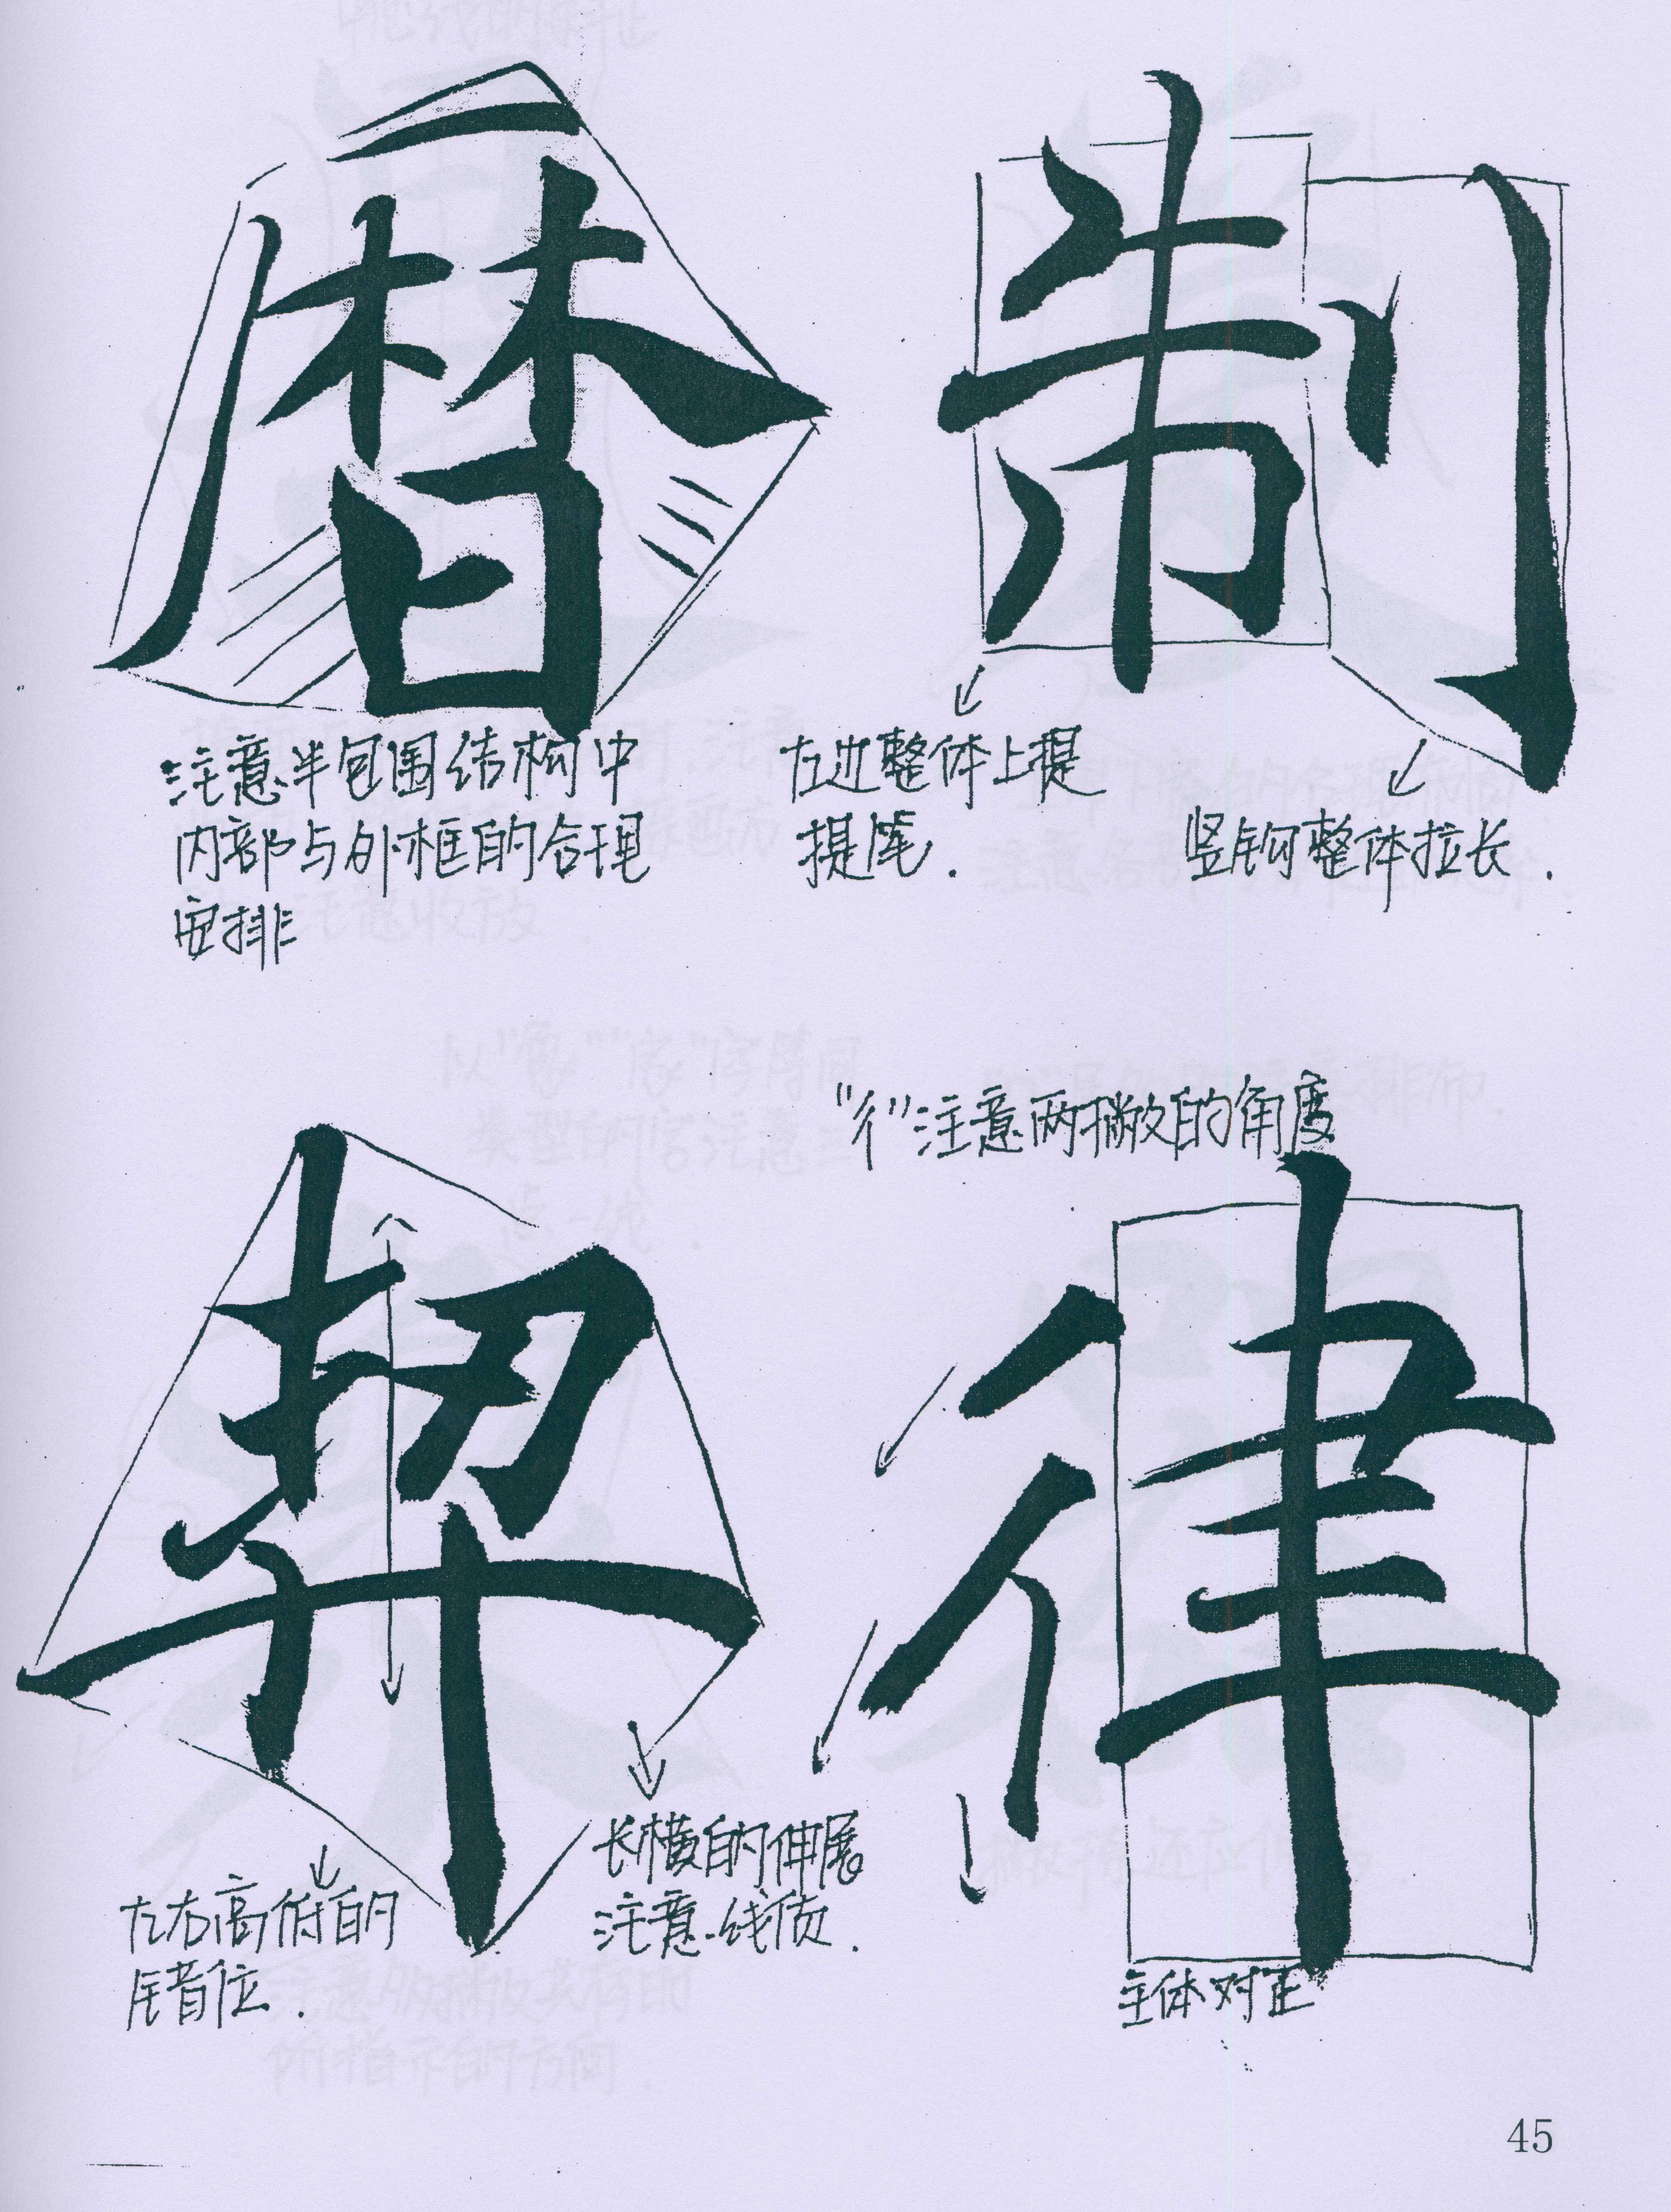 暦
制
注意半包围结构中
内部与外框的合理
安排
左边整体上提
提尾.
竖钩整体拉长.
“彳”注意两撇的角度
契
律
长横的伸展
注意线质.
左右高低的
错位.
主体对正
45